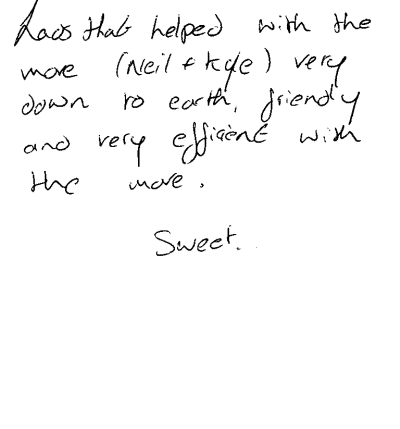 Lads that helped with the
move (Neil + Kyle) very
down to earth, friendly
and very efficient with
the move.
Sweet.